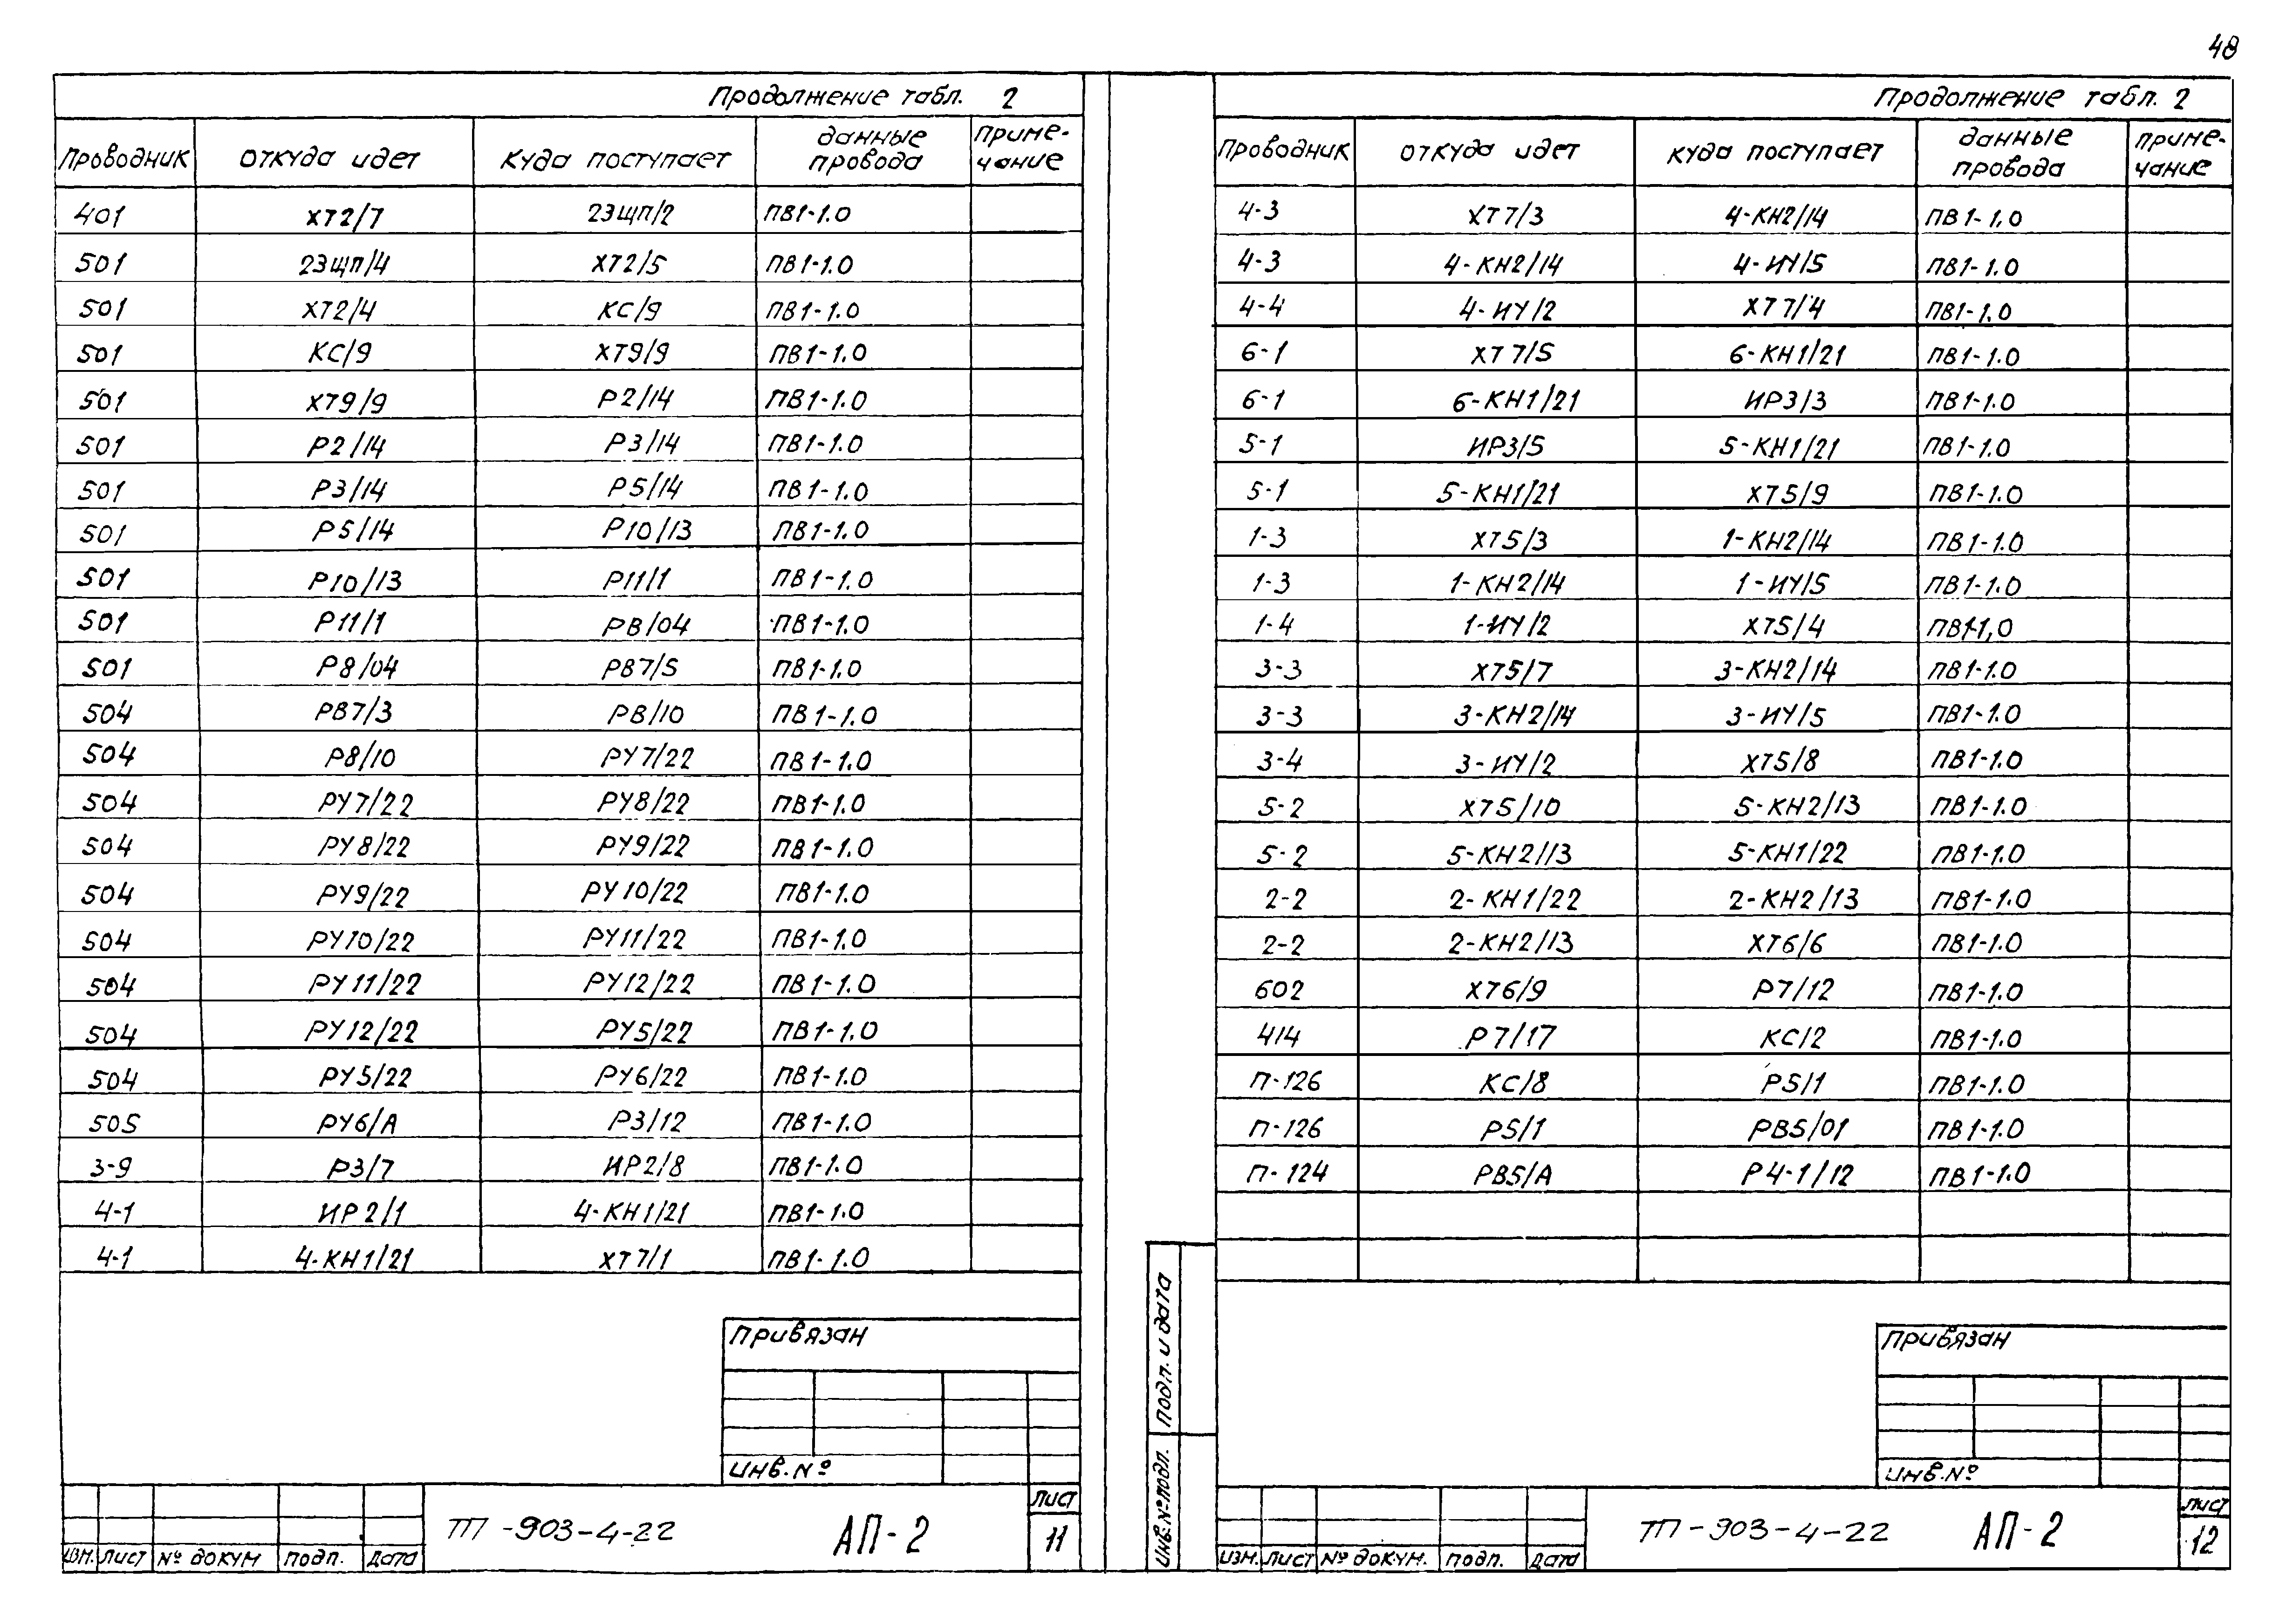 48
Продолжение табл. 2
Проводник откуда идет куда поступает данные провода приме-чание
401 ХТ2/7 2ЭЩП/2 ПВ1-1.0
501 2ЭЩП/4 ХТ2/5 ПВ1-1.0
501 ХТ2/4 КС/9 ПВ1-1.0
501 КС/9 ХТ9/9 ПВ1-1.0
501 ХТ9/9 Р2/14 ПВ1-1.0
501 Р2/14 Р3/14 ПВ1-1.0
501 Р3/14 Р5/14 ПВ1-1.0
501 Р5/14 Р10/13 ПВ1-1.0
501 Р10/13 Р11/1 ПВ1-1.0
501 Р11/1 Р8/04 ПВ1-1.0
501 Р8/04 РВ7/5 ПВ1-1.0
504 РВ7/3 Р8/10 ПВ1-1.0
504 Р8/10 РУ7/22 ПВ1-1.0
504 РУ7/22 РУ8/22 ПВ1-1.0
504 РУ8/22 РУ9/22 ПВ1-1.0
504 РУ9/22 РУ10/22 ПВ1-1.0
504 РУ10/22 РУ11/22 ПВ1-1.0
504 РУ11/22 РУ12/22 ПВ1-1.0
504 РУ12/22 РУ5/22 ПВ1-1.0
504 РУ5/22 РУ6/22 ПВ1-1.0
505 РУ6/А Р3/12 ПВ1-1.0
3-9 Р3/7 ИР2/8 ПВ1-1.0
4-1 ИР2/1 4-КН1/21 ПВ1-1.0
4-1 4-КН1/21 ХТ7/1 ПВ1-1.0
Привязан
инв.№
изм. лист № докум подп. дата
ТП-903-4-22 АП-2
лист
11
Продолжение табл. 2
Проводник откуда идет куда поступает данные провода приме-чание
4-3 ХТ7/3 4-КН2/14 ПВ1-1,0
4-3 4-КН2/14 4-ИУ/5 ПВ1-1.0
4-4 4-ИУ/2 ХТ7/4 ПВ1-1.0
6-1 ХТ7/5 6-КН1/21 ПВ1-1.0
6-1 6-КН1/21 ИР3/3 ПВ1-1.0
5-1 ИР3/5 5-КН1/21 ПВ1-1.0
5-1 5-КН1/21 ХТ5/9 ПВ1-1.0
1-3 ХТ5/3 1-КН2/14 ПВ1-1.0
1-3 1-КН2/14 1-ИУ/5 ПВ1-1.0
1-4 1-ИУ/2 ХТ5/4 ПВ1-1,0
3-3 ХТ5/7 3-КН2/14 ПВ1-1.0
3-3 3-КН2/14 3-ИУ/5 ПВ1-1.0
3-4 3-ИУ/2 ХТ5/8 ПВ1-1.0
5-2 ХТ5/10 5-КН2/13 ПВ1-1.0
5-2 5-КН2/13 5-КН1/22 ПВ1-1.0
2-2 2-КН1/22 2-КН2/13 ПВ1-1.0
2-2 2-КН2/13 ХТ6/6 ПВ1-1.0
602 ХТ6/9 Р7/12 ПВ1-1.0
414 Р7/17 КС/2 ПВ1-1.0
П-126 КС/8 Р5/1 ПВ1-1.0
П-126 Р5/1 РВ5/01 ПВ1-1.0
П-124 РВ5/А Р4-1/12 ПВ1-1.0
подп. и дата
инв.№подл.
Привязан
инв.№
изм. лист № докум. подп. дата
ТП-903-4-22 АП-2
лист
12